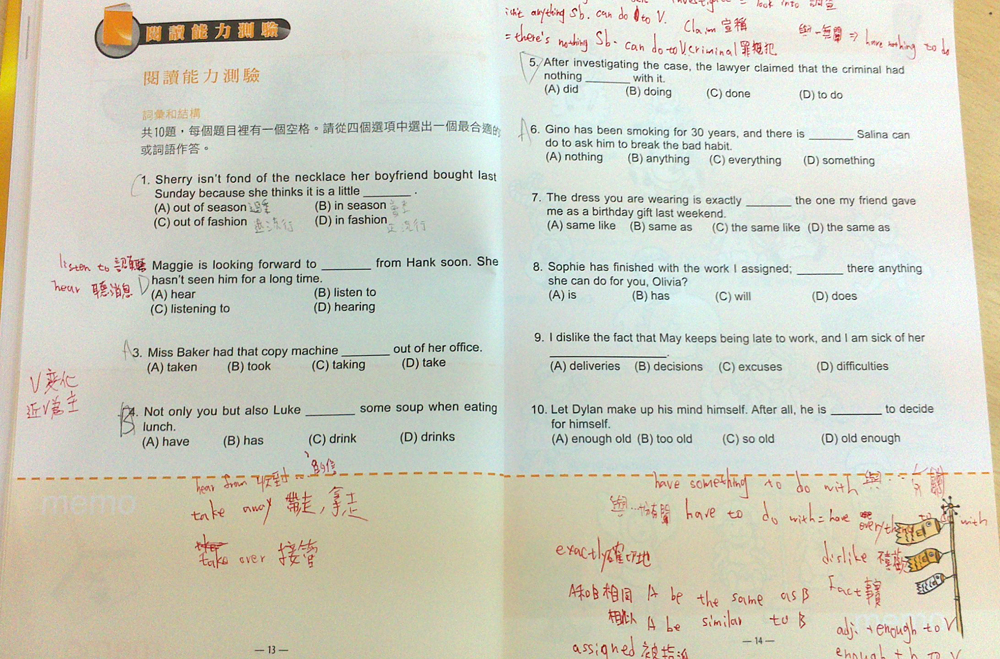 閱讀能力測驗
閱讀能力測驗
詞彙和結構
共10題，每個題目裡有一個空格。請從四個選項中選出一個最合適的
或詞語作答。
C
1. Sherry isn't fond of the necklace her boyfriend bought last
Sunday because she thinks it is a little ________ .
(A) out of season 過季 (B) in season 當季
(C) out of fashion 退流行 (D) in fashion 正流行
listen to 認真聽
hear 聽消息
D
Maggie is looking forward to ________ from Hank soon. She
hasn't seen him for a long time.
(A) hear (B) listen to
(C) listening to (D) hearing
A
3. Miss Baker had that copy machine ________ out of her office.
(A) taken (B) took (C) taking (D) take
V 變化
近V為主
B
4. Not only you but also Luke ________ some soup when eating
lunch.
(A) have (B) has (C) drink (D) drinks
hear from 收到~的信
take away 帶走，拿走
take over 接管
memo
— 13 —
investigate = look into 調查
isn't anything sb. can do to V.
Claim 宣稱
與…無關 ⇒ have nothing to do
= there's nothing Sb. can do to V
criminal 罪犯
D
5. After investigating the case, the lawyer claimed that the criminal had
nothing ________ with it.
(A) did (B) doing (C) done (D) to do
A
6. Gino has been smoking for 30 years, and there is ________ Salina can
do to ask him to break the bad habit.
(A) nothing (B) anything (C) everything (D) something
7. The dress you are wearing is exactly ________ the one my friend gave
me as a birthday gift last weekend.
(A) same like (B) same as (C) the same like (D) the same as
8. Sophie has finished with the work I assigned; ________ there anything
she can do for you, Olivia?
(A) is (B) has (C) will (D) does
9. I dislike the fact that May keeps being late to work, and I am sick of her
________________.
(A) deliveries (B) decisions (C) excuses (D) difficulties
10. Let Dylan make up his mind himself. After all, he is ________ to decide
for himself.
(A) enough old (B) too old (C) so old (D) old enough
have something to do with 與…有關
have to do with = have everything to do with
exactly 確切地
dislike 
A和B相同 A be the same as B
Fact 事實
相似 A be similar to B
adj. + enough to V
assigned 被指派
enough + n to V
— 14 —